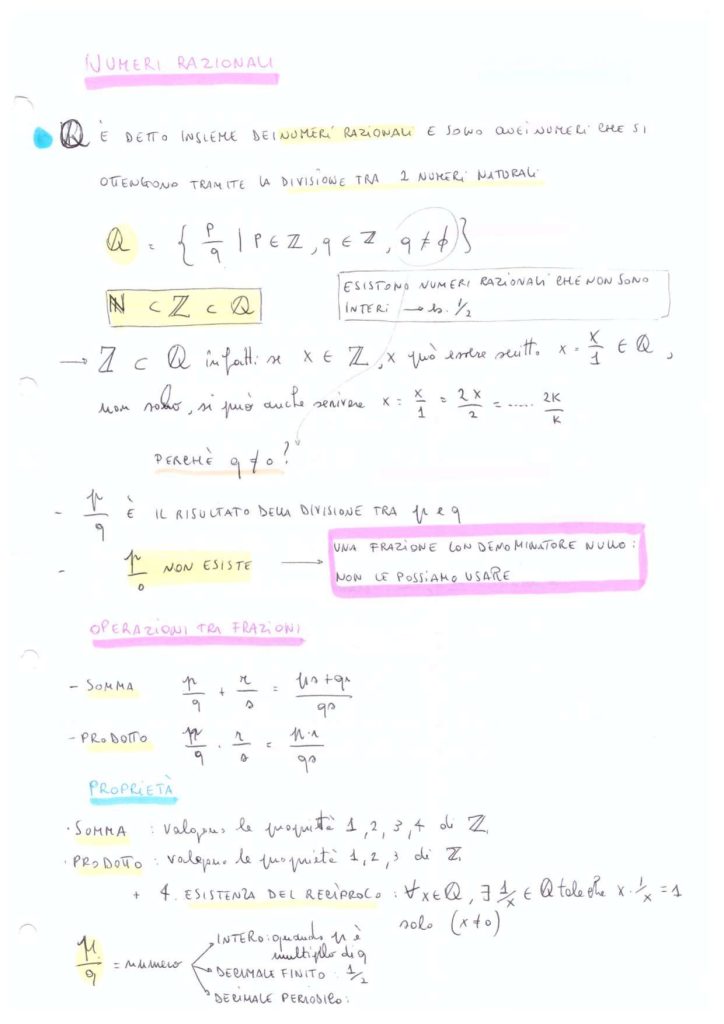 NUMERI RAZIONALI
ℚ È DETTO INSIEME DEI NUMERI RAZIONALI E SONO QUEI NUMERI CHE SI
OTTENGONO TRAMITE LA DIVISIONE TRA 2 NUMERI NATURALI
ℚ = { p/q | p ∈ ℤ, q ∈ ℤ, q ≠ ϕ }
ESISTONO NUMERI RAZIONALI CHE NON SONO
INTERI → Es. 1/2
ℕ ⊂ ℤ ⊂ ℚ
→ ℤ ⊂ ℚ infatti se x ∈ ℤ, x può essere scritto x = x/1 ∈ ℚ,
non solo, si può anche scrivere x = x/1 = 2x/2 = ..... 2K/K
PERCHÈ q ≠ 0?
- p/q È IL RISULTATO DELLA DIVISIONE TRA p e q
- p/0 NON ESISTE → UNA FRAZIONE CON DENOMINATORE NULLO:
NON LE POSSIAMO USARE
OPERAZIONI TRA FRAZIONI
- SOMMA p/q + r/s = ps+qr/qs
- PRODOTTO p/q · r/s = p·r/qs
PROPRIETÀ
· SOMMA : valgono le proprietà 1, 2, 3, 4 di ℤ
· PRODOTTO : valgono le proprietà 1, 2, 3 di ℤ
+ 4. ESISTENZA DEL RECIPROCO : ∀x∈ℚ, ∃ 1/x ∈ ℚ tale che x · 1/x = 1
solo (x≠0)
p/q = numero
INTERO: quando p è
multiplo di q
DECIMALE FINITO : 1/2
DECIMALE PERIODICO :